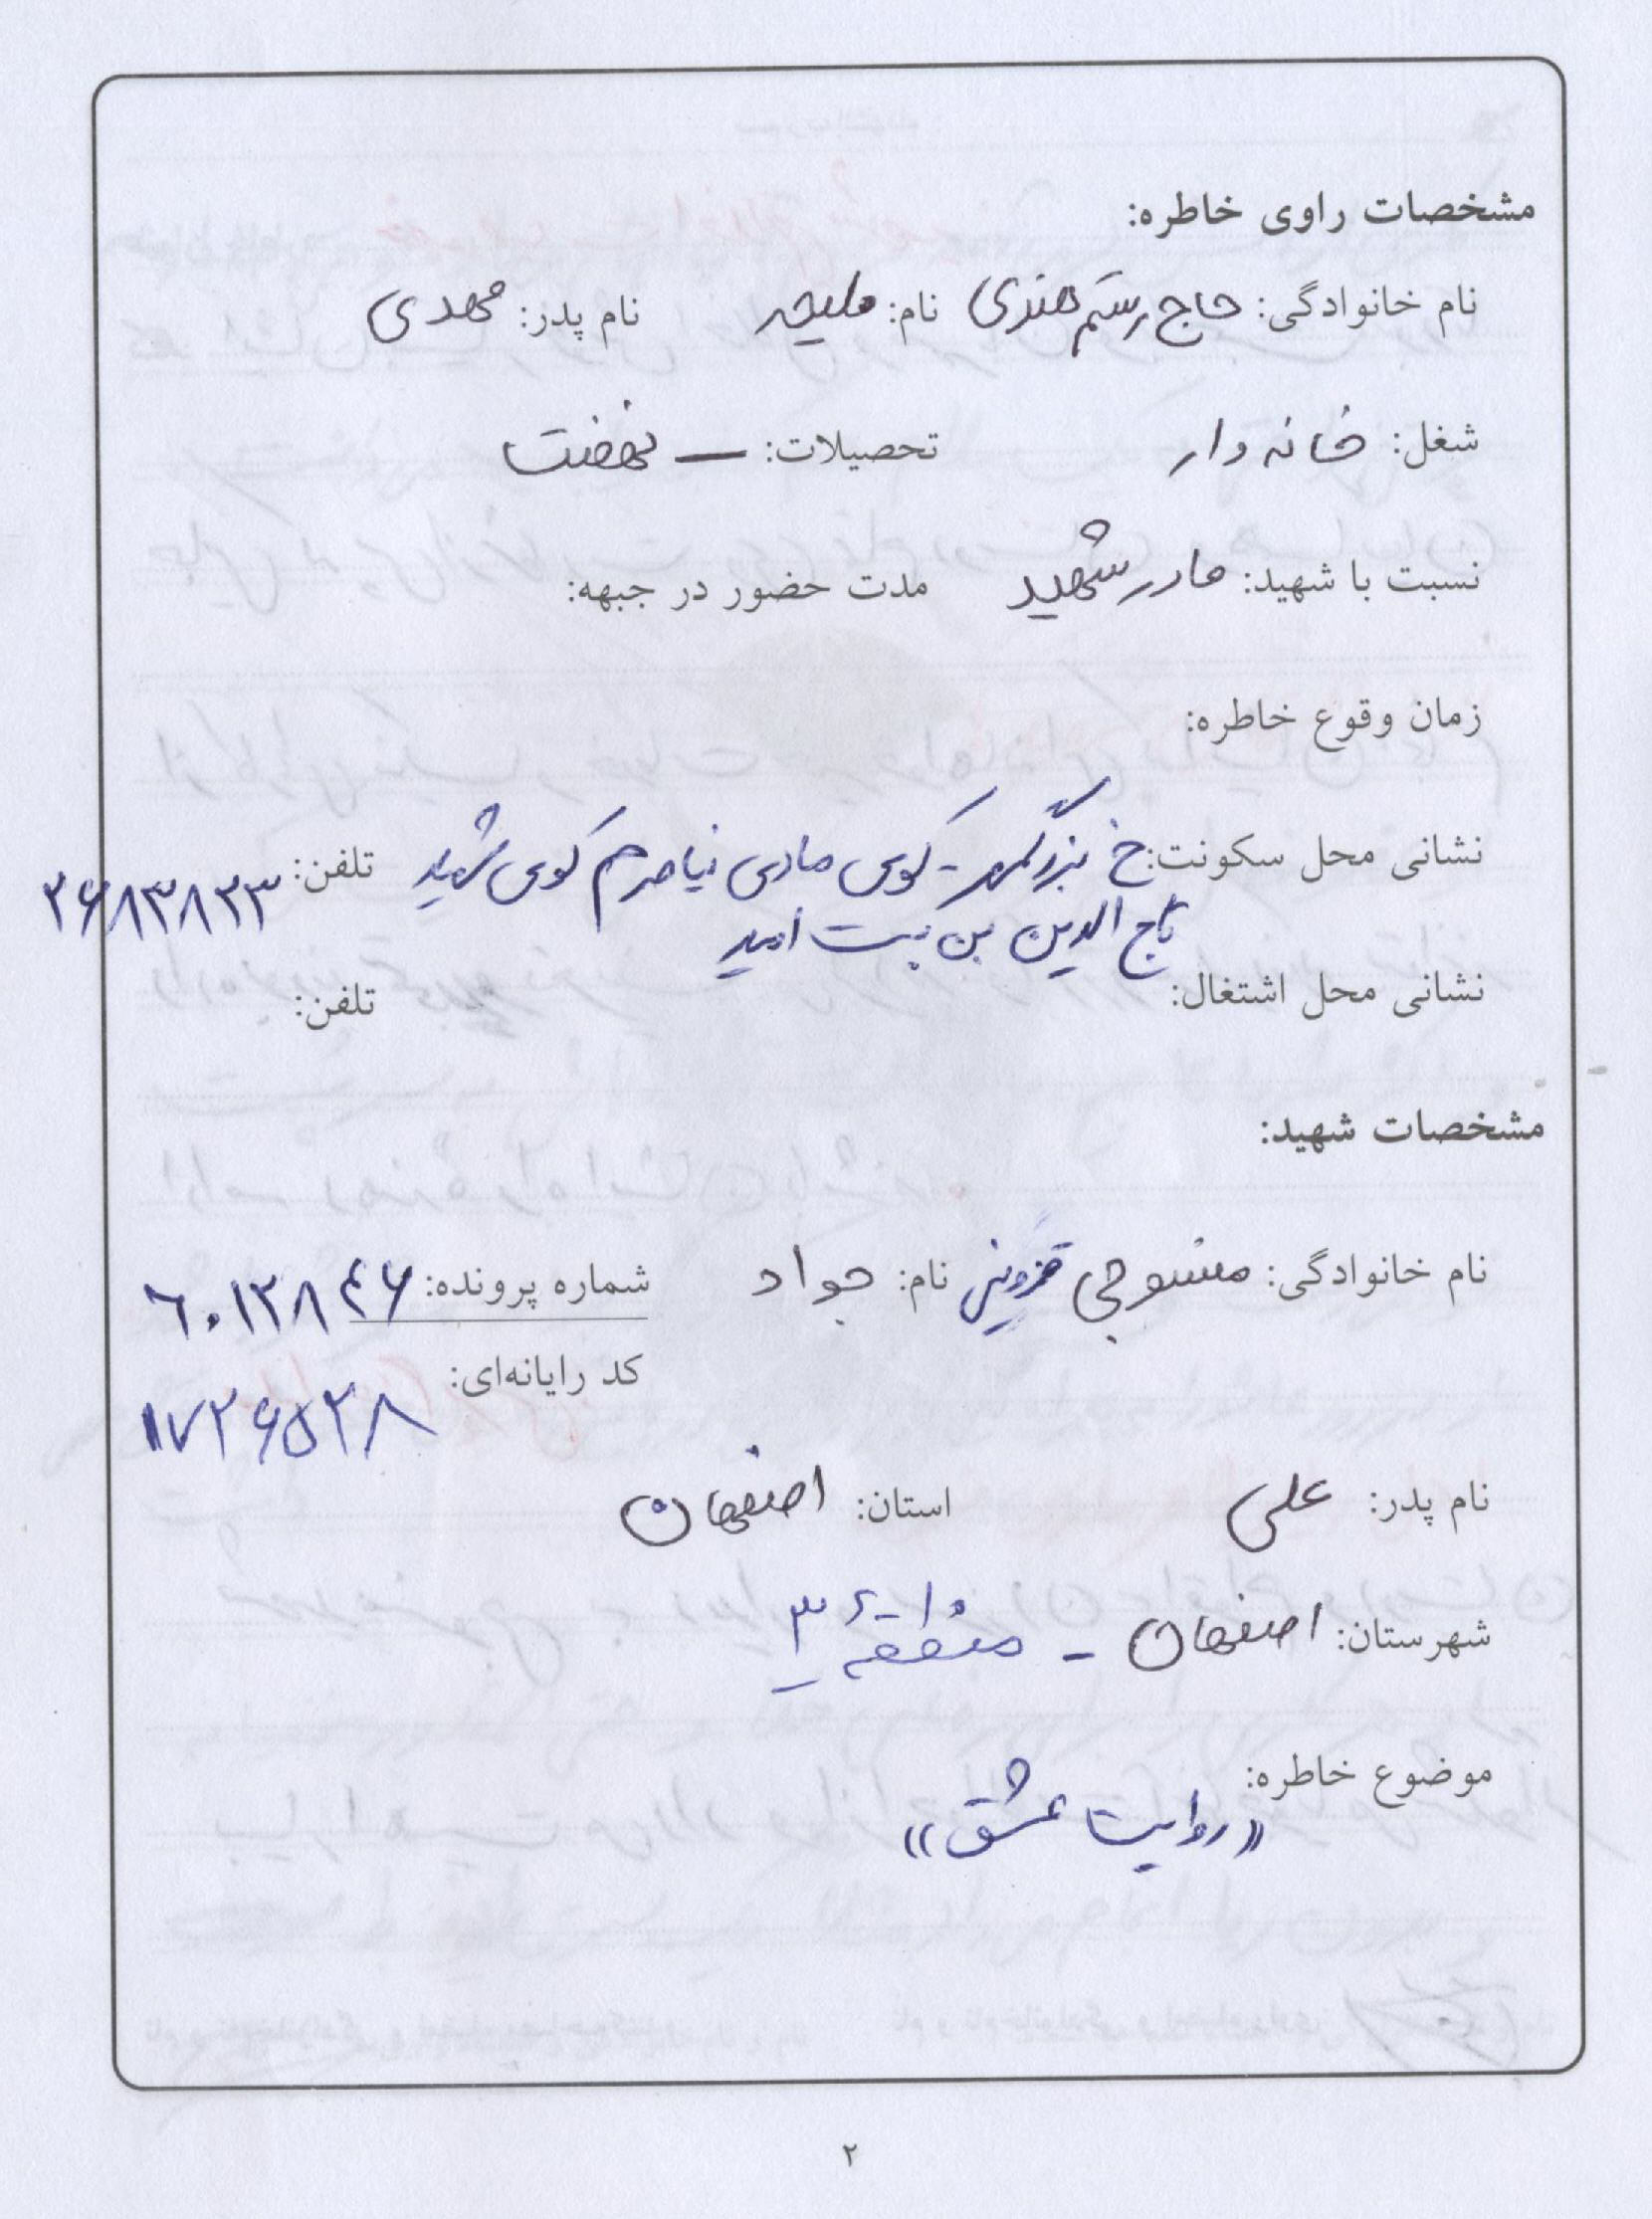 مشخصات راوی خاطره:
نام خانوادگی: حاج رستم هندی نام: ملیحه نام پدر: مهدی
شغل: خانه دار تحصیلات: – نهضت
نسبت با شهید: مادر شهید مدت حضور در جبهه:
زمان وقوع خاطره:
نشانی محل سکونت: خ بزرگمهر - کوی مادی نیاصرم کوی شهید تلفن: ۲۶۸۳۸۲۳
تاج الدین بن بست امید
نشانی محل اشتغال: تلفن:
مشخصات شهید:
نام خانوادگی: منسوجی قزوینی نام: جواد شماره پرونده: ۶۰۱۲۸۴۶
کد رایانه‌ای:
۱۷۲۶۵۲۸
نام پدر: علی استان: اصفهان
شهرستان: اصفهان - منطقه ۳
موضوع خاطره:
«روایت عشق»
۲